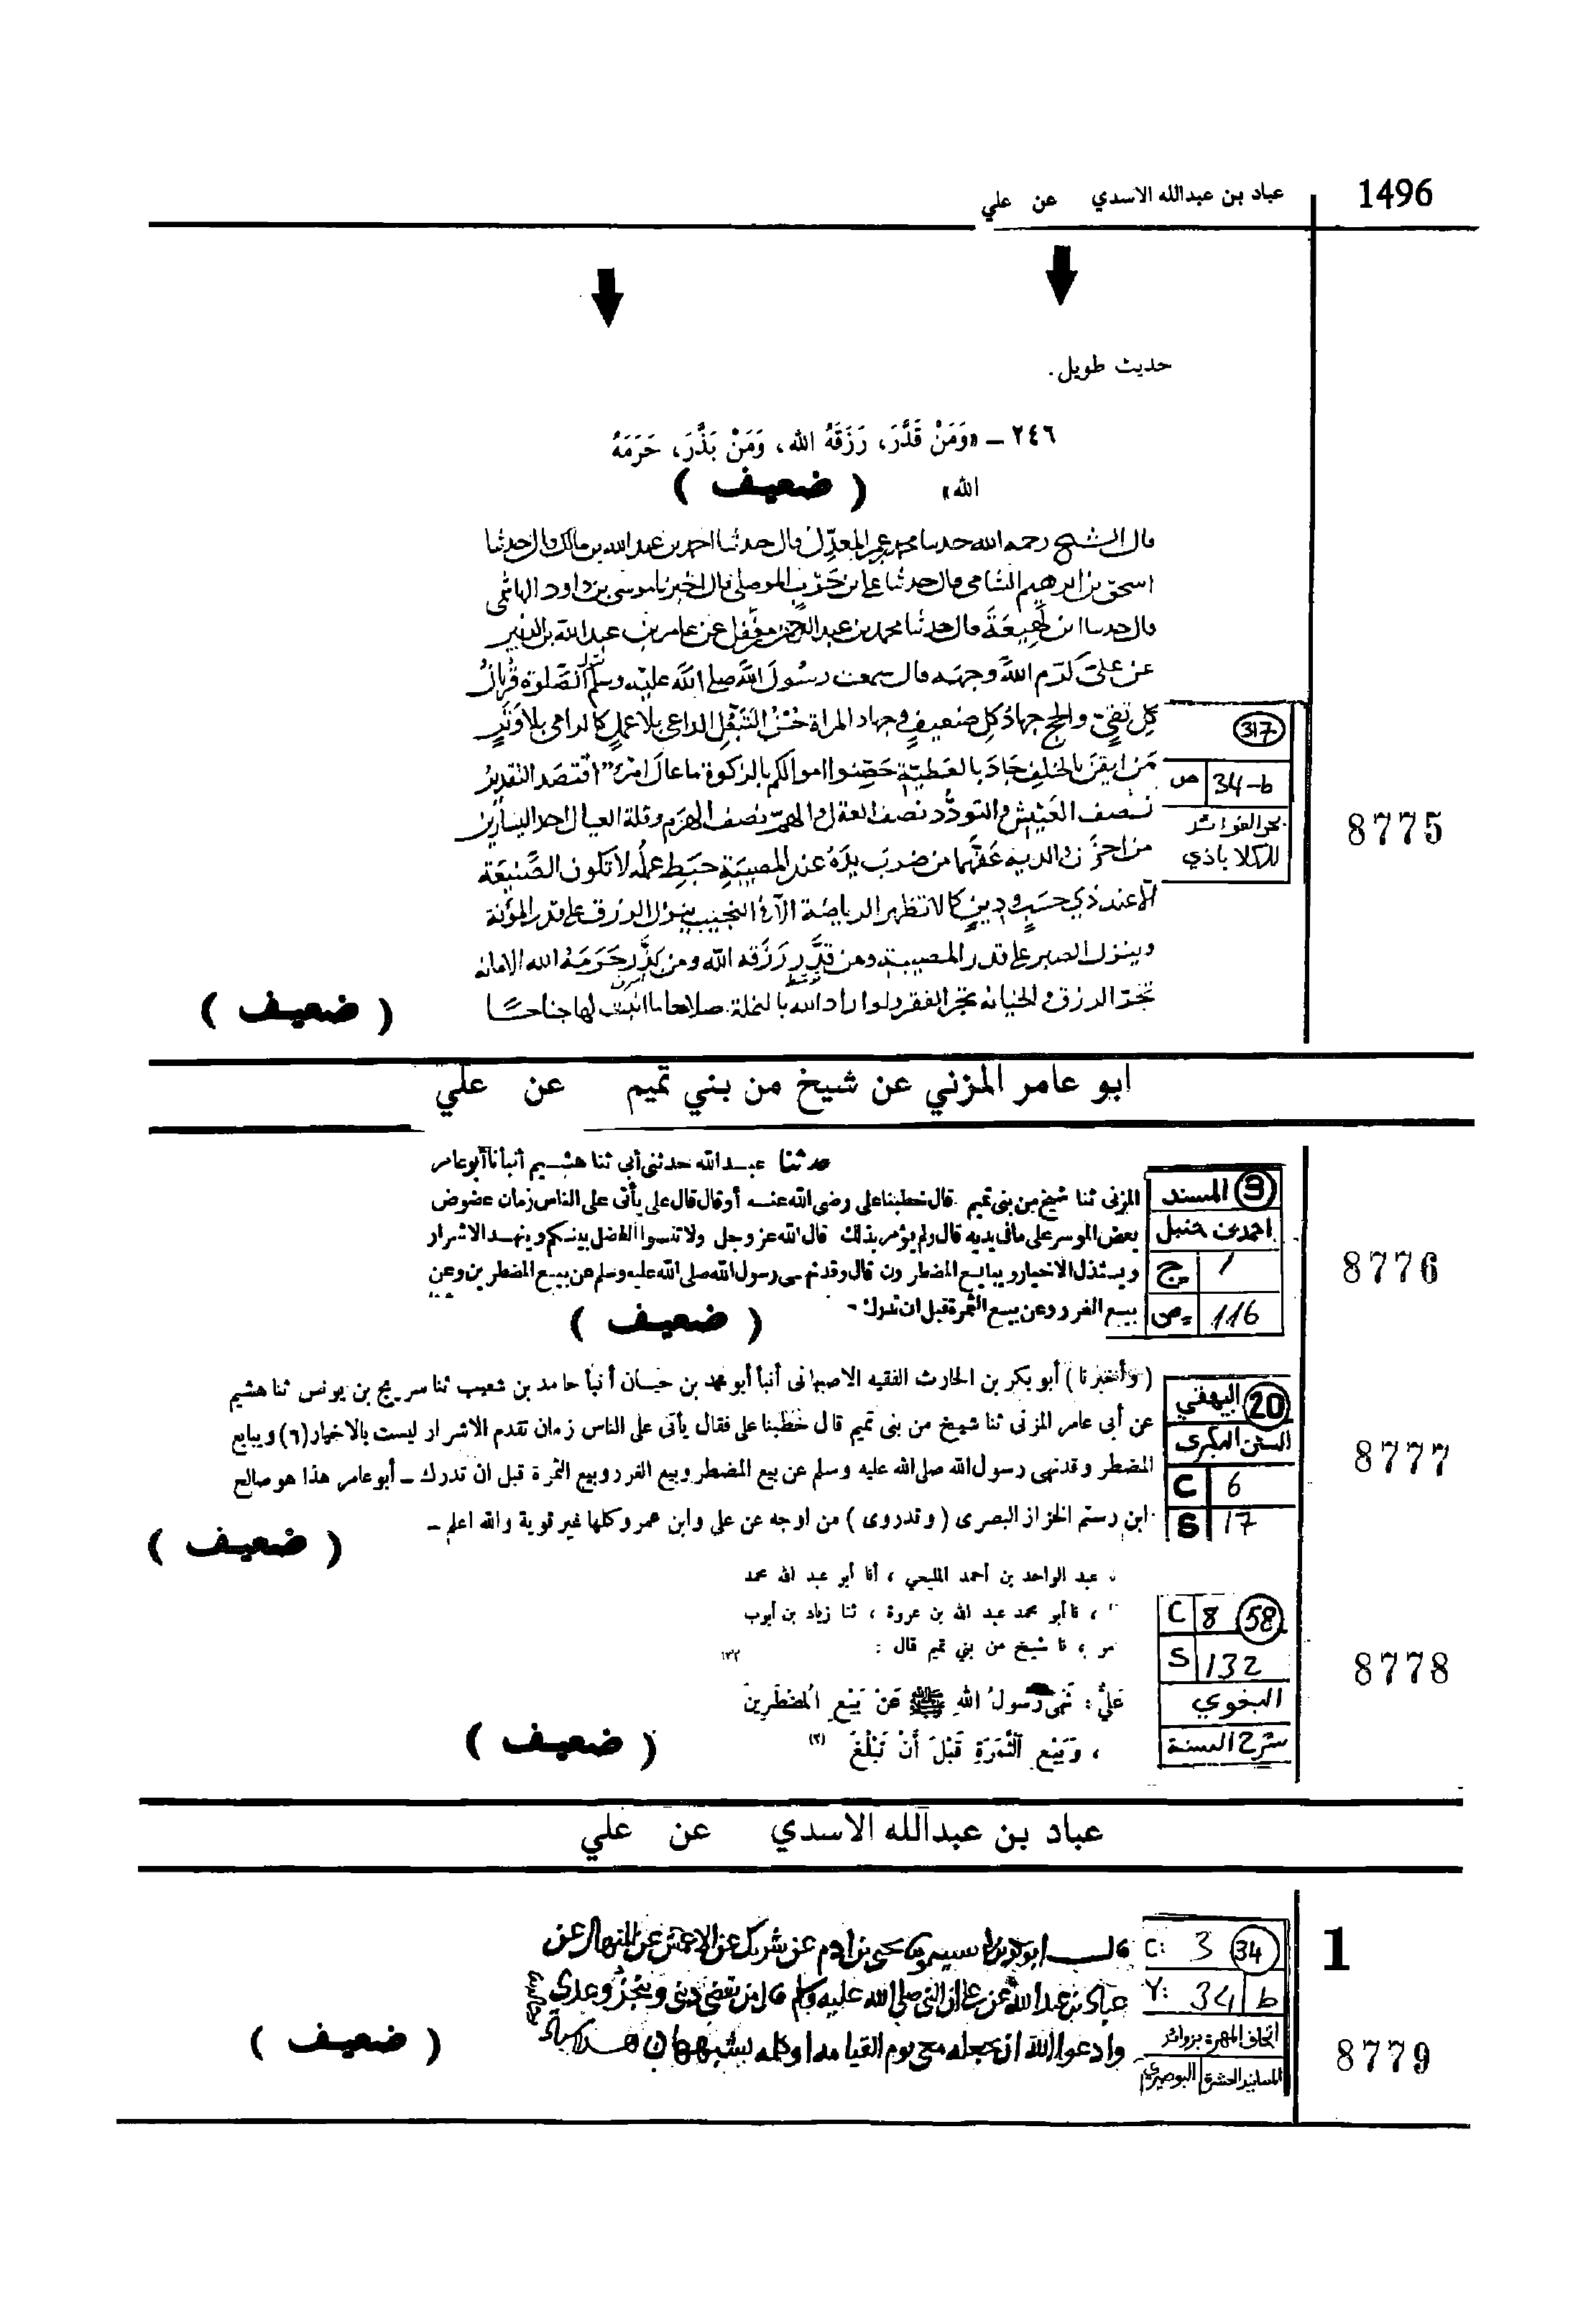 1496
عباد بن عبدالله الاسدي عن علي
حديث طويل.
٢٤٦ – «وَمَنْ قَدَّرَ، رَزَقَهُ الله، وَمَنْ بَذَّرَ، حَرَمَهُ
الله»
( ضعيف )
قال الشيخ رحمه الله حدثنا محمد بن عمر المعدّل قال حدثنا احمد بن عبد الله بن مالك قال حدثنا
اسحق بن ابرهيم الشامي قال حدثنا علي بن حَرْب الموصلي قال اخبرنا موسى بن داود الهاشمي
قال حدثنا ابن لَهِيعَة قال حدثنا محمد بن عبد الرحمن بن نوفل عن عامر بن عبد الله بن الزبير
عن علىّ كرّم اللهُ وجهَه قال سمعت رسُولَ اللهِ صلى الله عليه وسلم يقول الصَّلوة قُربانُ
كلِ تَقيٍّ والحج جهادُ كلِ ضعيفٍ وجهاد المراة حُسْنُ التَّبعُّلِ الداعى بلا عملٍ كالرامى بلا وَتَرٍ
مَن ايقنَ بالخلفِ جَادَ بالعَطيّةِ حَصِّنوا اموالكم بالزكوة ما عالَ امرؤٌ اقتصَد التقديرُ
نصف العَيْشِ والتودُّد نصف العقل والهمّ نصف الهَرَم وقلة العيال احد اليسارين
من احزَن والديه عَقّهما من ضرب يدَهُ عند المصيبَةِ حَبَطِ عملُه لا تكون الصَّنيعَة
الّا عند ذي حَسَبٍ ودِينٍ كما لا تظهر الرياضة الّا في النجيب ينزل الرزق على قدر المؤنة
وينزل الصبر على قدر المصيبة ومن قدَّر رزقه الله ومن بَذَّر حَرَمَهُ الله الامانة
تجرّ الرزق والخيانة تجر الفقر ولو اراد الله بالنملة صلاحا ما انبت لها جناحًا
( ضعيف )
317
ص 34-b
بحر الفوائد
للكلاباذي
8775
ابو عامر المزني عن شيخ من بني تميم عن علي
حدثنا عبد الله حدثنى أبى ثنا هشيم أنبأنا أبو عامر
المزنى ثنا شيخ من بنى تميم قال خطبنا على رضى الله عنه أو قال قال على يأتى على الناس زمان عضوض
يعض الموسر على ما فى يديه قال ولم يؤمر بذلك قال الله عز وجل ولا تنسوا الفضل بينكم وينهد الاشرار
ويستذل الاخيار ويبايع المضطرون قال وقد نهى رسول الله صلى الله عليه وسلم عن بيع المضطرين وعن
بيع الغرر وعن بيع الثمرة قبل ان تدرك
( ضعيف )
3 المسند
احمد بن حنبل
ج 1
ص 116
8776
( وأخبرنا ) أبو بكر بن الحارث الفقيه الاصبهانى أنبأ أبو محمد بن حيان أنبأ حامد بن شعيب ثنا سريج بن يونس ثنا هشيم
عن أبى عامر المزنى ثنا شيخ من بنى تميم قال خطبنا على فقال يأتى على الناس زمان تقدم الاشرار ليست بالاخيار(٦) ويبايع
المضطر وقد نهى رسول الله صلى الله عليه وسلم عن بيع المضطر وبيع الغرر وبيع الثمرة قبل ان تدرك – أبو عامر هذا هو صالح
ابن رستم الخزاز البصرى ( وقد روى ) من اوجه عن على وابن عمر وكلها غير قوية والله اعلم –
( ضعيف )
20 البيهقي
السنن الكبرى
C 6
S 17
8777
عبد الواحد بن أحمد المليحي ، أنا أبو عبد الله محمد
، نا أبو محمد عبد الله بن عروة ، ثنا زياد بن أيوب
مر ، نا شيخ من بني تميم قال :
١٣٢
عَليٌّ : نَهَى رَسولُ اللهِ ﷺ عَنْ بَيْعِ المُضْطَرِّينَ
، وَبَيْعِ الثَّمَرَةِ قَبْلَ أَنْ تَبْلُغَ (٢)
( ضعيف )
C 8 58
S 132
البغوي
شرح السنة
8778
عباد بن عبدالله الاسدي عن علي
قال ابو بكر بن ابي شيبة ثنا يحيى بن ادم عن شريك عن الاعمش عن المنهال عن
عباد بن عبد الله عن علي ان النبي صلى الله عليه وسلم قال من يقضي ديني وينجز وعدي
وادعوا الله ان يجعله معي يوم القيامة او كلمة يشبهها
( ضعيف )
C: 3 34
Y: 34 b
اتحاف المهرة بزوائد
المسانيد العشرة البوصيري
1
8779